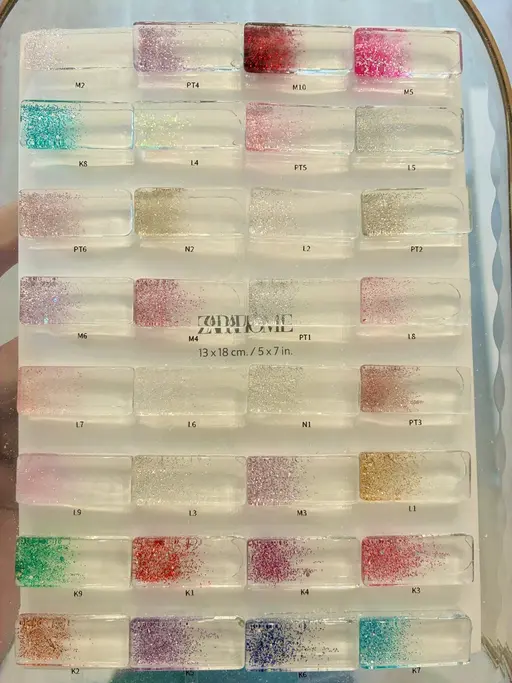 M2 PT4 M10 M5
K8 L4 PT5 L5
PT6 N2 L2 PT2
M6 M4 PT1 L8
ZARA HOME
13 x 18 cm. / 5 x 7 in.
L7 L6 N1 PT3
L9 L3 M3 L1
K9 K1 K4 K3
K2 K5 K6 K7